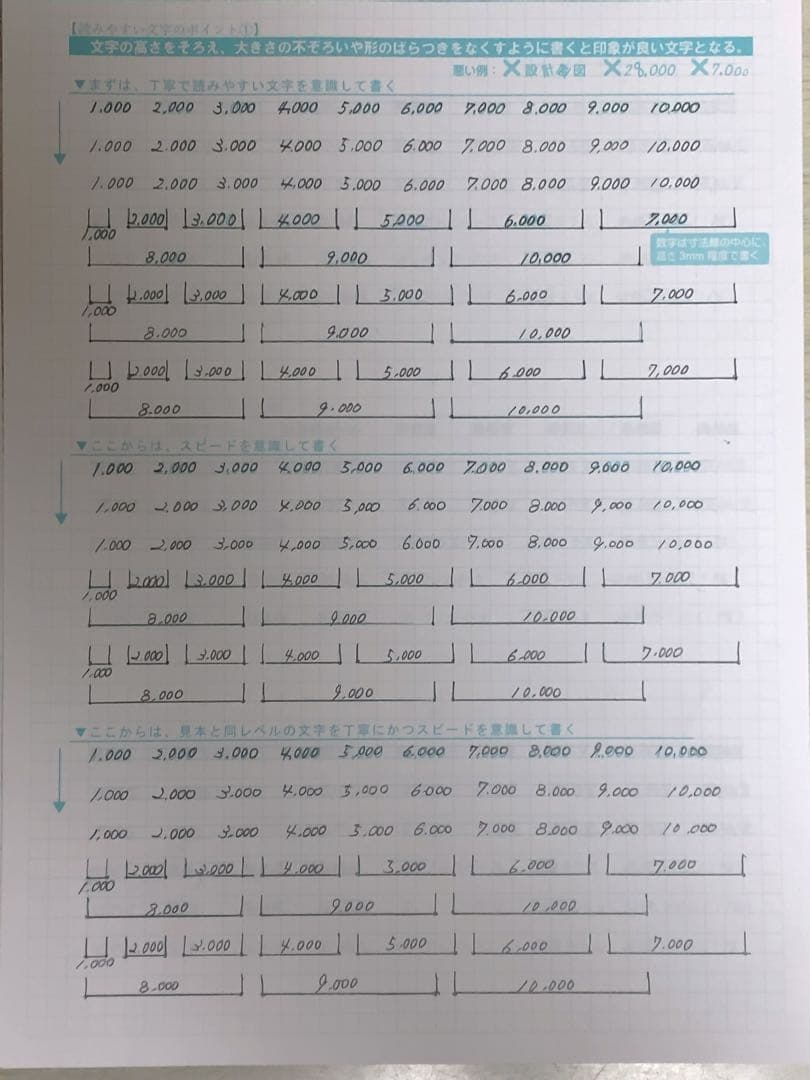 【読みやすい文字のポイント①】
文字の高さをそろえ、大きさの不ぞろいや形のばらつきをなくすように書くと印象が良い文字となる。
悪い例：×設計番図 ×28,000 ×7.000
▼まずは、丁寧で読みやすい文字を意識して書く
1.000 2,000 3,000 4,000 5,000 6,000 7,000 8.000 9,000 10,000
1.000 2.000 3.000 4.000 5.000 6.000 7,000 8.000 9,000 10,000
1.000 2,000 3.000 4,000 5.000 6.000 7.000 8,000 9,000 10,000
2,000 3.000 4.000 5,000 6.000 7,000
1,000
数字は寸法線の中心に、
高さ3mm程度で書く
8,000 9,000 10,000
2.000 3,000 4,000 5.000 6.000 7.000
1,000
8.000 9.000 10,000
2.000 3.000 4,000 5,000 6.000 7,000
1.000
8.000 9.000 10,000
▼ここからは、スピードを意識して書く
1.000 2,000 3,000 4,000 5,000 6,000 7,000 8,000 9,000 10,000
1,000 2,000 3,000 4,000 5,000 6.000 7.000 8.000 9,000 10,000
1.000 2,000 3,000 4,000 5,000 6.000 7,000 8,000 9,000 10,000
2,000 3.000 4,000 5,000 6.000 7.000
1.000
8.000 9.000 10.000
2.000 3.000 4.000 5,000 6.000 7.000
1.000
8,000 9,000 10.000
▼ここからは、見本と同レベルの文字を丁寧にかつスピードを意識して書く
1.000 2,000 3.000 4,000 5,000 6.000 7,000 8,000 9,000 10,000
1,000 2.000 3.000 4.000 5,000 6.000 7.000 8.000 9,000 10,000
1,000 2.000 3.000 4.000 5.000 6.000 7.000 8.000 9.000 10,000
2.000 3.000 4.000 5.000 6.000 7.000
1.000
8.000 9.000 10.000
2.000 3.000 4.000 5.000 6.000 7.000
1.000
8.000 9.000 10.000